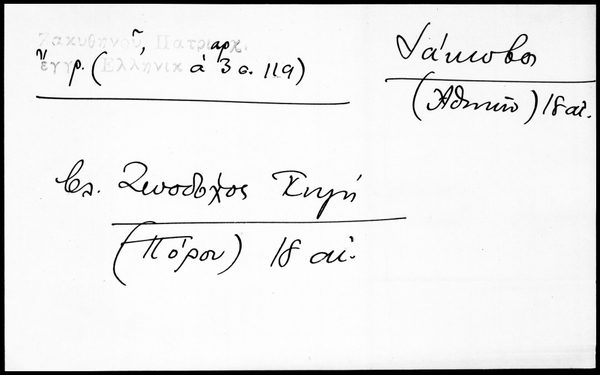 Ζακυθηνοῦ, Πατριαρχ.
ἔγγρ. (Ἑλληνικ ἀ 3 σ. 119)
Ἰάκωβος
(Ἀθηνῶν) 18 αἰ.
βλ. Ζωοδόχος Πηγή
(Πόρου) 18 αἰ.